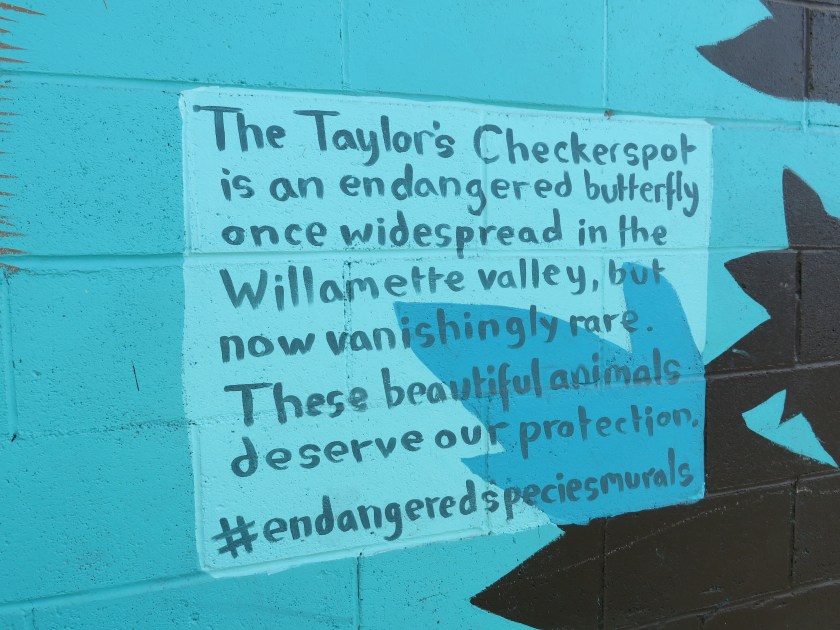 The Taylor's Checkerspot
is an endangered butterfly
once widespread in the
Willamette valley, but
now vanishingly rare.
These beautiful animals
deserve our protection.
#endangeredspeciesmurals